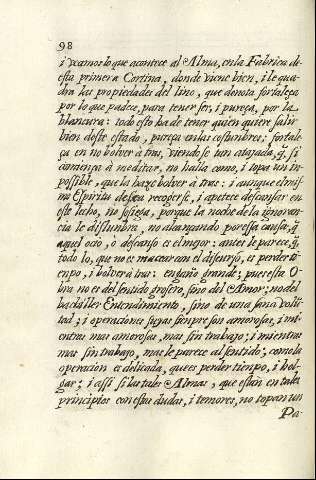 98
i veamos lo que acontece al Alma, en la Fabrica de
esta primera Cortina, donde viene bien, i le qua-
dra las propiedades del lino, que denota fortaleça
por lo que padece, para tener ser, i pureça, por la
blancura: todo esto ha de tener quien quiere salir
bien deste estado, pureça en las costunbres; fortale-
ça en no bolver à tras, viendose tan atajada, q̃, si
comiença à meditar, no halla como, i topa un in-
possible, que la haze bolver à tras: i aunque el mis-
mo Espiritu desea recogerse, i apetece descansar en
este lecho, no sosiega, porque la noche de la ignoran-
cia le disturba, no alcançando por essa causa, q̃
aquel ocio, o descanso es el mejor: antes le parece, q̃
todo lo, que no es macear con el discurso, es perder ti-
enpo, i bolver à tras: engaño grande; pues esta O-
bra no es del sentido grosero, sino del Amor; no del
bachiller Entendimiento, sino de una sana volun-
tad; i operaciones suyas sienpre son amorosas, i mi-
entras mas amorosas, mas sin trabajo; i mientras
mas sin trabajo, mas le parece al sentido; como la
operacion es delicada, que es perder tienpo, i hol-
gar; i assi si las tales Almas, que estan en tales
principios con estas dudas, i temores, no topan un
Pa-